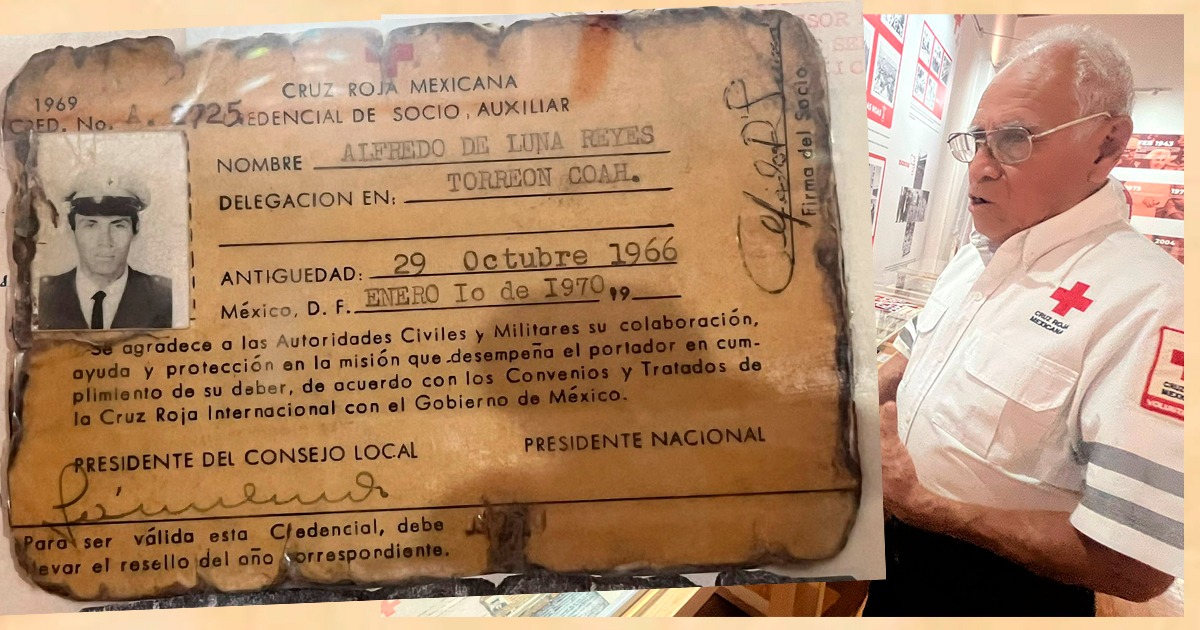 CRUZ ROJA MEXICANA
1969
CRED. No. A. 2725
CREDENCIAL DE SOCIO, AUXILIAR
NOMBRE ALFREDO DE LUNA REYES
DELEGACION EN: TORREON COAH.
ANTIGUEDAD: 29 Octubre 1966
México, D. F. ENERO Io de I970, 19
Se agradece a las Autoridades Civiles y Militares su colaboración,
ayuda y protección en la misión que desempeña el portador en cum-
plimiento de su deber, de acuerdo con los Convenios y Tratados de
la Cruz Roja Internacional con el Gobierno de México.
PRESIDENTE DEL CONSEJO LOCAL
PRESIDENTE NACIONAL
Para ser válida esta Credencial, debe
llevar el resello del año correspondiente.
Firma del Socio
CRUZ ROJA
MEXICANA
FEB 1943
2004